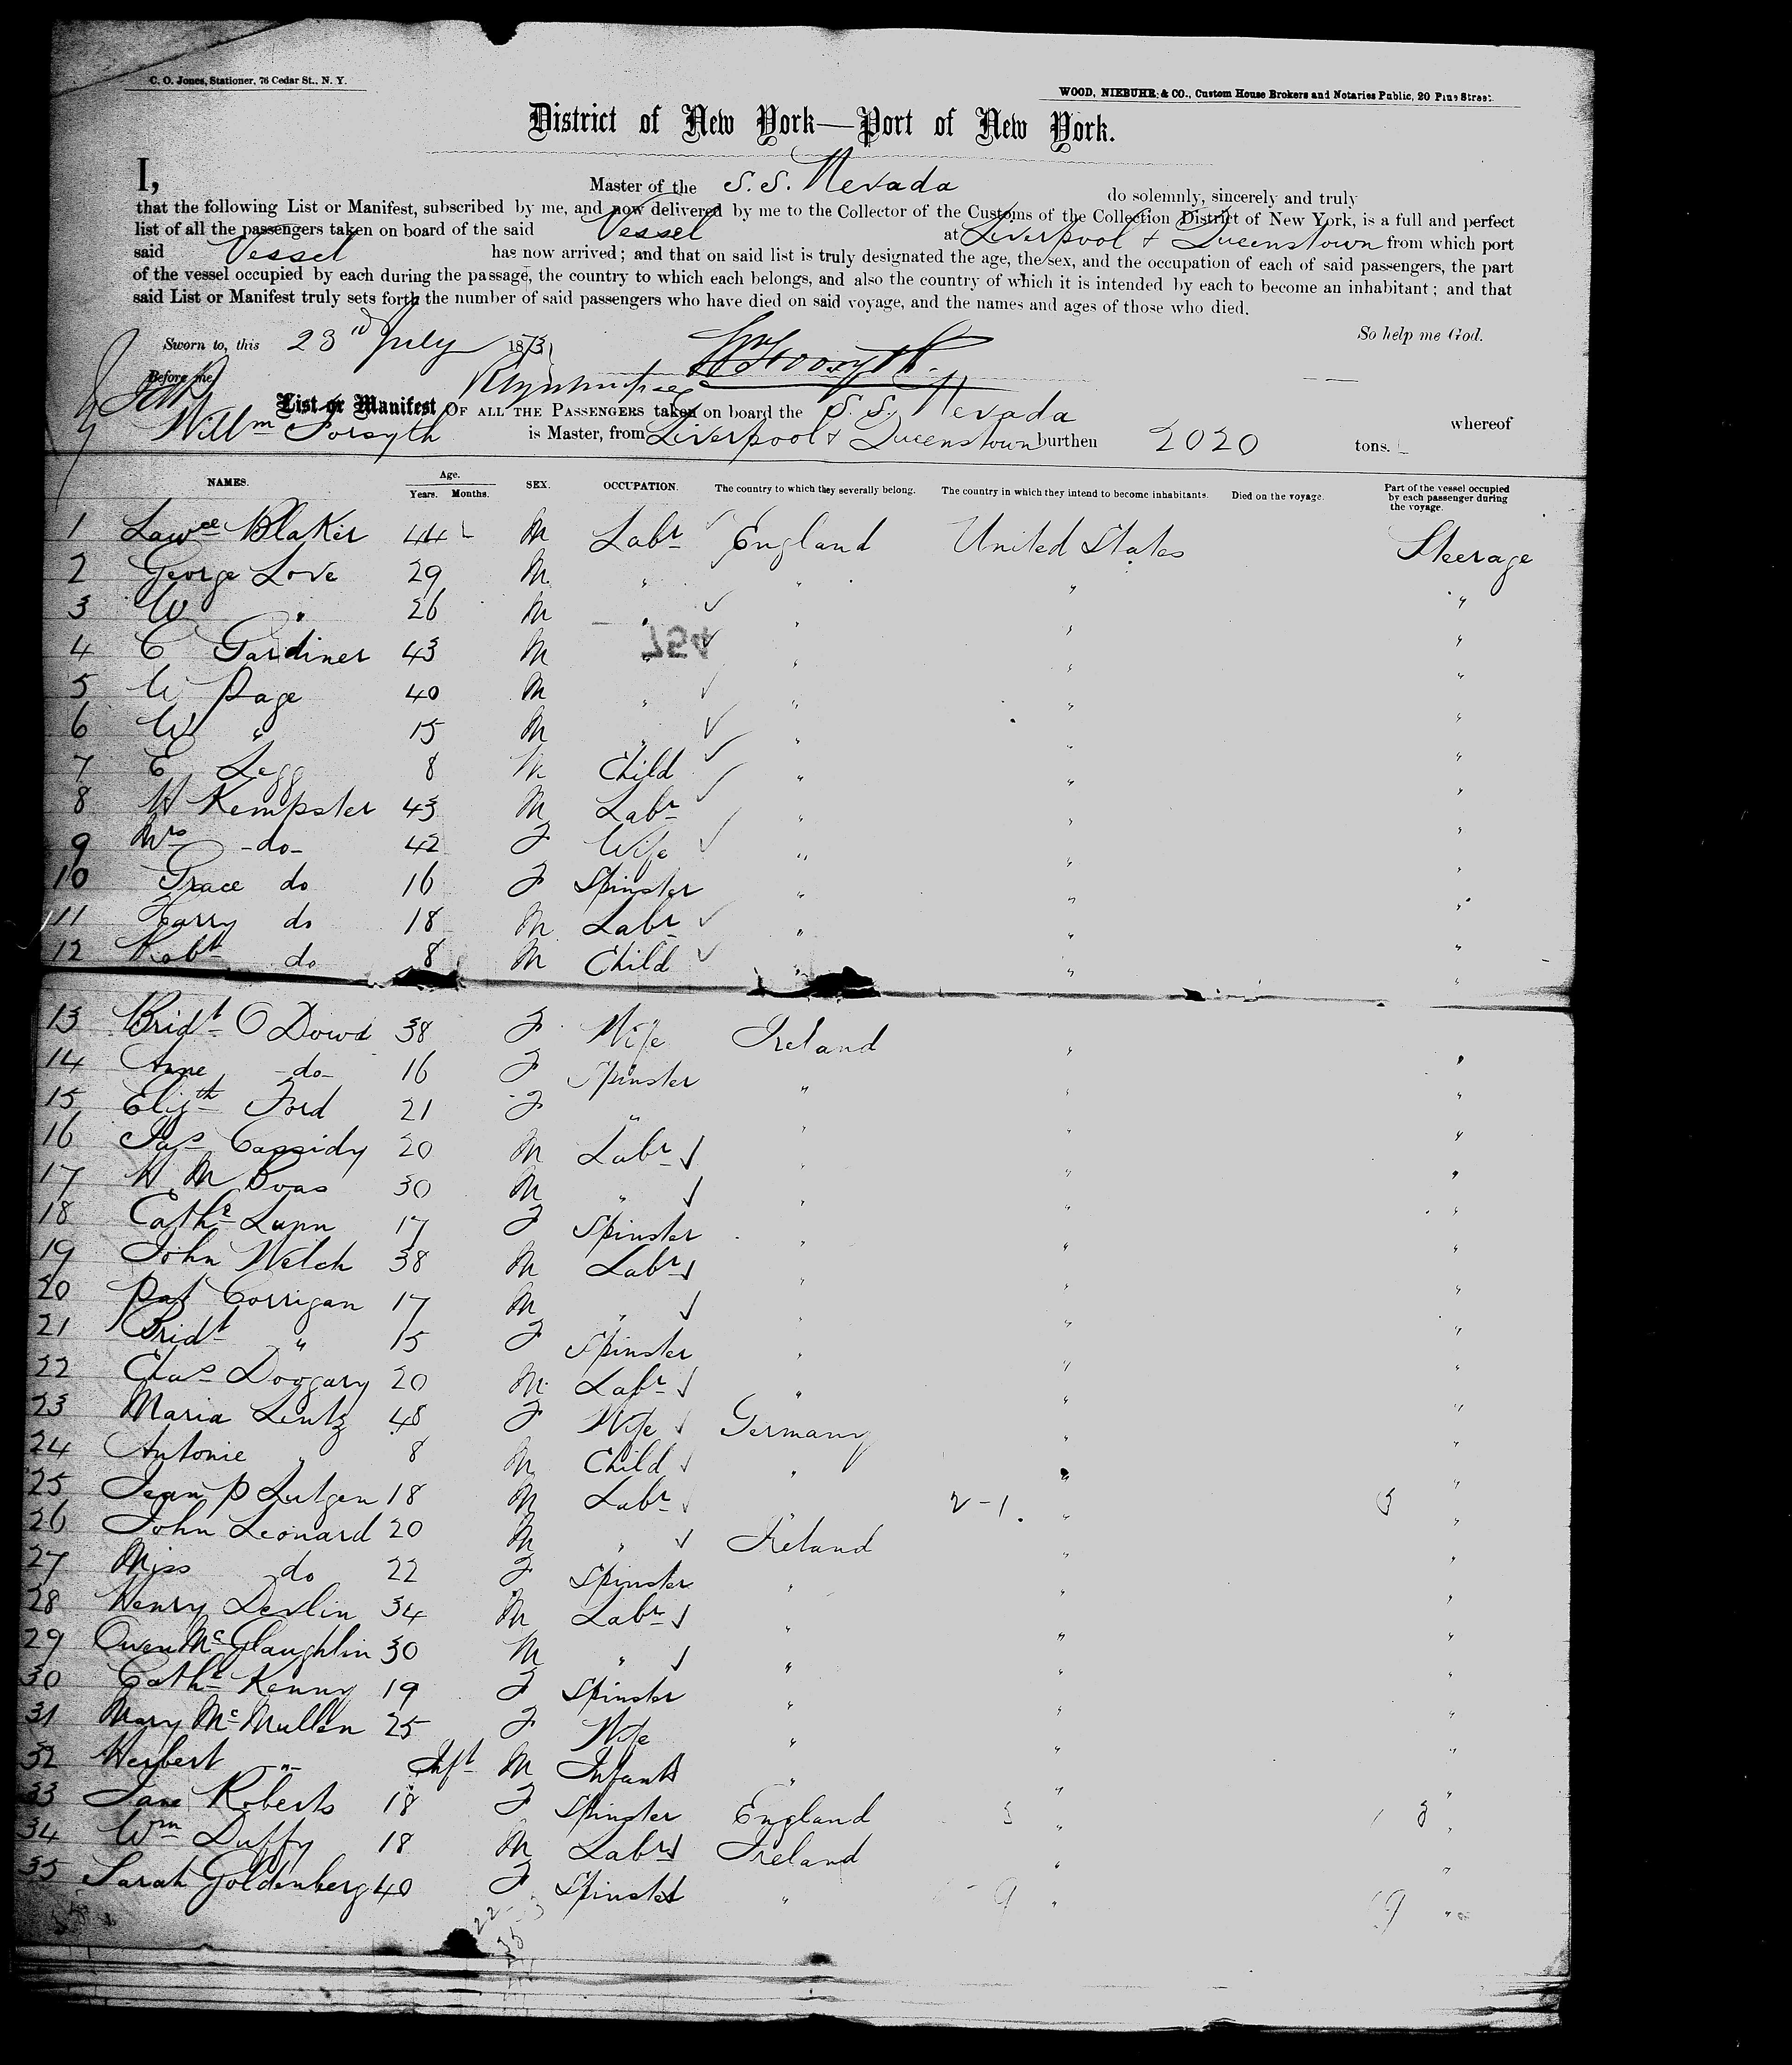 C. O. Jones, Stationer, 76 Cedar St., N. Y.
WOOD, NIEBUHR, & CO., Custom House Brokers and Notaries Public, 20 Pine Street.
District of New York—Port of New York.
I, Master of the S.S. Nevada do solemnly, sincerely and truly
that the following List or Manifest, subscribed by me, and now delivered by me to the Collector of the Customs of the Collection District of New York, is a full and perfect
list of all the passengers taken on board of the said Vessel at Liverpool & Queenstown from which port
said Vessel has now arrived; and that on said list is truly designated the age, the sex, and the occupation of each of said passengers, the part
of the vessel occupied by each during the passage, the country to which each belongs, and also the country of which it is intended by each to become an inhabitant; and that
said List or Manifest truly sets forth the number of said passengers who have died on said voyage, and the names and ages of those who died.
So help me God.
Sworn to, this 23rd July 1873
Before me,
List or Manifest OF ALL THE PASSENGERS taken on board the S. S. Nevada whereof
Willm Forsyth is Master, from Liverpool & Queenstown burthen 2020 tons.
NAMES. Age. Years. Months. SEX. OCCUPATION. The country to which they severally belong. The country in which they intend to become inhabitants. Died on the voyage. Part of the vessel occupied by each passenger during the voyage.
1 Lawce Blaker 44 M Labr England United States Steerage
2 George Love 29 M " " " "
3 W " 26 M " " " "
4 C Gardiner 43 M " " " "
5 W Page 40 M " " " "
6 W " 15 M " " " "
7 E Legg 8 M Child " " "
8 H Kempster 43 M Labr " " "
9 Mrs -do- 42 F Wife " " "
10 Grace do 16 F Spinster " " "
11 Harry do 18 M Labr " " "
12 Robt do 8 M Child " " "
13 Bridt O Dowd 38 F Wife Ireland " "
14 Anne -do- 16 F Spinster " " "
15 Elizth Ford 21 F " " " "
16 Jas Cassidy 20 M Labr " " "
17 H M Boas 30 M " " " "
18 Cathe Lunn 17 F Spinster " " "
19 John Welch 38 M Labr " " "
20 Pat Corrigan 17 M " " " "
21 Bridt " 15 F Spinster " " "
22 Chas Doogary 20 M Labr " " "
23 Maria Lentz 48 F Wife Germany " "
24 Antonie " 8 M Child " " "
25 Jean P Lutgen 18 M Labr " 2-1 " "
26 John Leonard 20 M " Ireland " "
27 Miss do 22 F Spinster " " "
28 Henry Devlin 34 M Labr " " "
29 Owen McGlaughlin 30 M " " " "
30 Cathe Kenny 19 F Spinster " " "
31 Mary McMullen 25 F Wife " " "
32 Herbert -"- Inft M Infant " " "
33 Jane Roberts 18 F Spinster England " "
34 Wm Duffy 18 M Labr Ireland " "
35 Sarah Goldenberg 40 F Spinster " " "